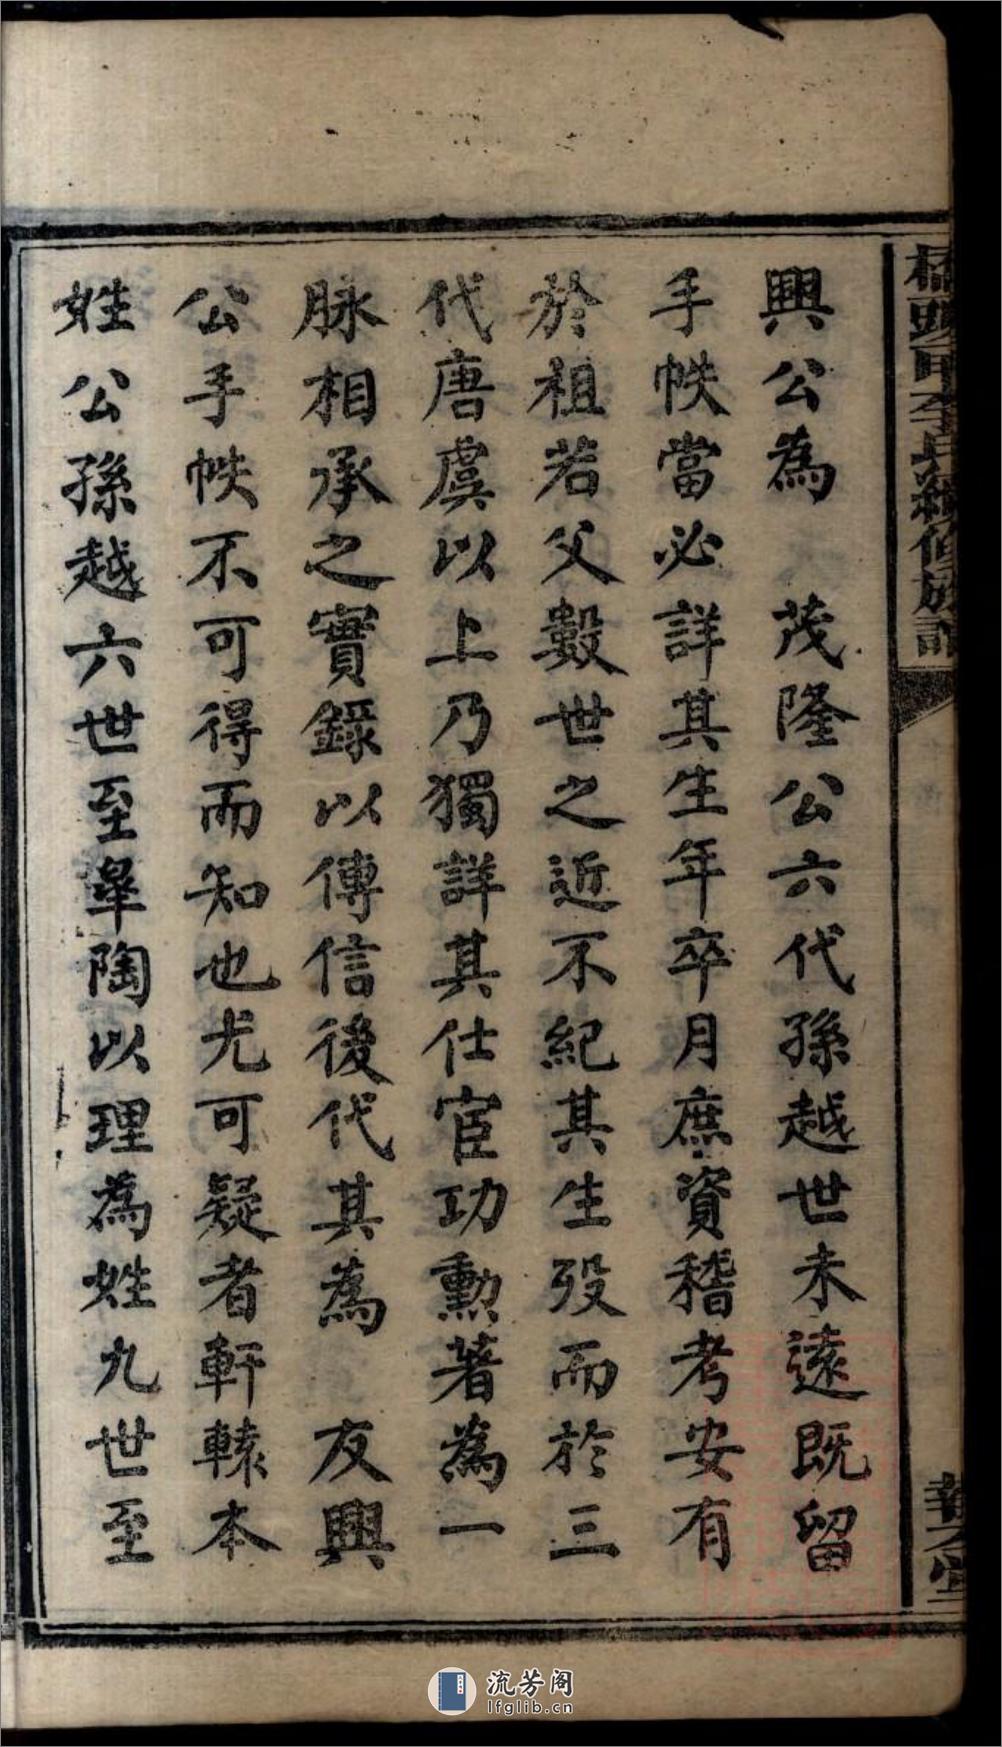 興公為　茂隆公六代孫越世未遠既留
手帙當必詳其生年卒月庶資稽考安有
於祖若父數世之近不紀其生歿而於三
代唐虞以上乃獨詳其仕宦功勲著為一
脉相承之實錄以傳信後代其為　友興
公手帙不可得而知也尤可疑者軒轅本
姓公孫越六世至皐陶以理為姓九世至
流芳阁
lfglib.cn